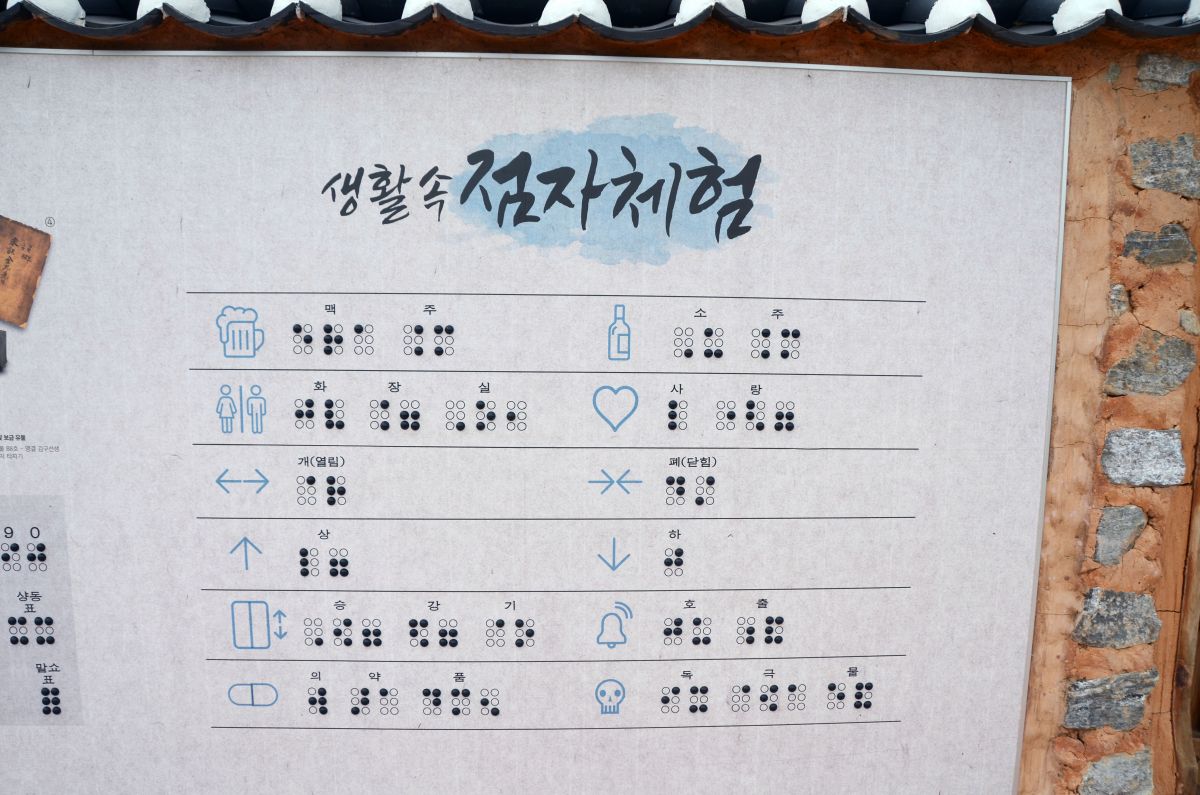 생활 속 점자체험
④
맥 주
소 주
화 장 실
사 랑
개(열림)
폐(닫힘)
상
하
승 강 기
호 출
의 약 품
독 극 물
보급 유물
9 0
샹동
표
말쇼
표